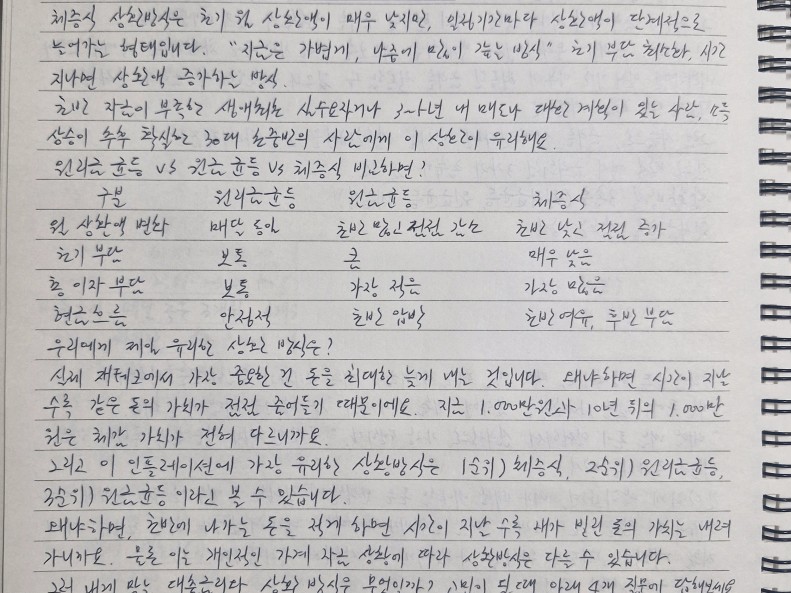 체증식 상환방식은 초기 월 상환액이 매우 낮지만, 일정기간마다 상환액이 단계적으로
늘어가는 형태입니다. "지금은 가볍게, 나중에 많이 갚는 방식" 초기 부담 최소화, 시간
지나면 상환액 증가하는 방식.
초반 자금이 부족한 생애최초 실수요자거나 3~5년 내 매도나 대환 계획이 있는 사람, 소득
상승이 추후 확실한 30대 초중반의 사람에게 이 상환이 유리해요.
원리금 균등 vs 원금 균등 vs 체증식 비교하면?
구분 원리금균등 원금균등 체증식
월 상환액 변화 매달 동일 초반 많고 점점 감소 초반 낮고 점점 증가
초기 부담 보통 큼 매우 낮음
총 이자 부담 보통 가장 적음 가장 많음
현금흐름 안정적 초반 압박 초반 여유, 후반 부담
우리에게 제일 유리한 상환 방식은?
실제 재테크에서 가장 중요한 건 돈을 최대한 늦게 내는 것입니다. 왜냐하면 시간이 지날
수록 같은 돈의 가치가 점점 줄어들기 때문이에요. 지금 1.000만원과 10년 뒤의 1.000만
원은 체감 가치가 전혀 다르니까요.
그리고 이 인플레이션에 가장 유리한 상환방식은 1순위) 체증식, 2순위) 원리금균등,
3순위) 원금균등 이라고 볼 수 있습니다.
왜냐하면, 초반에 나가는 돈을 적게 하면 시간이 지날 수록 내가 빌린 돈의 가치는 내려
가니까요. 물론 이는 개인적인 가계 자금 상황에 따라 상환방식은 다를 수 있습니다.
그럼 내게 맞는 대출금리다 상환 방식은 무엇인가? 될 때 아래 4개 질문에 답해보세요